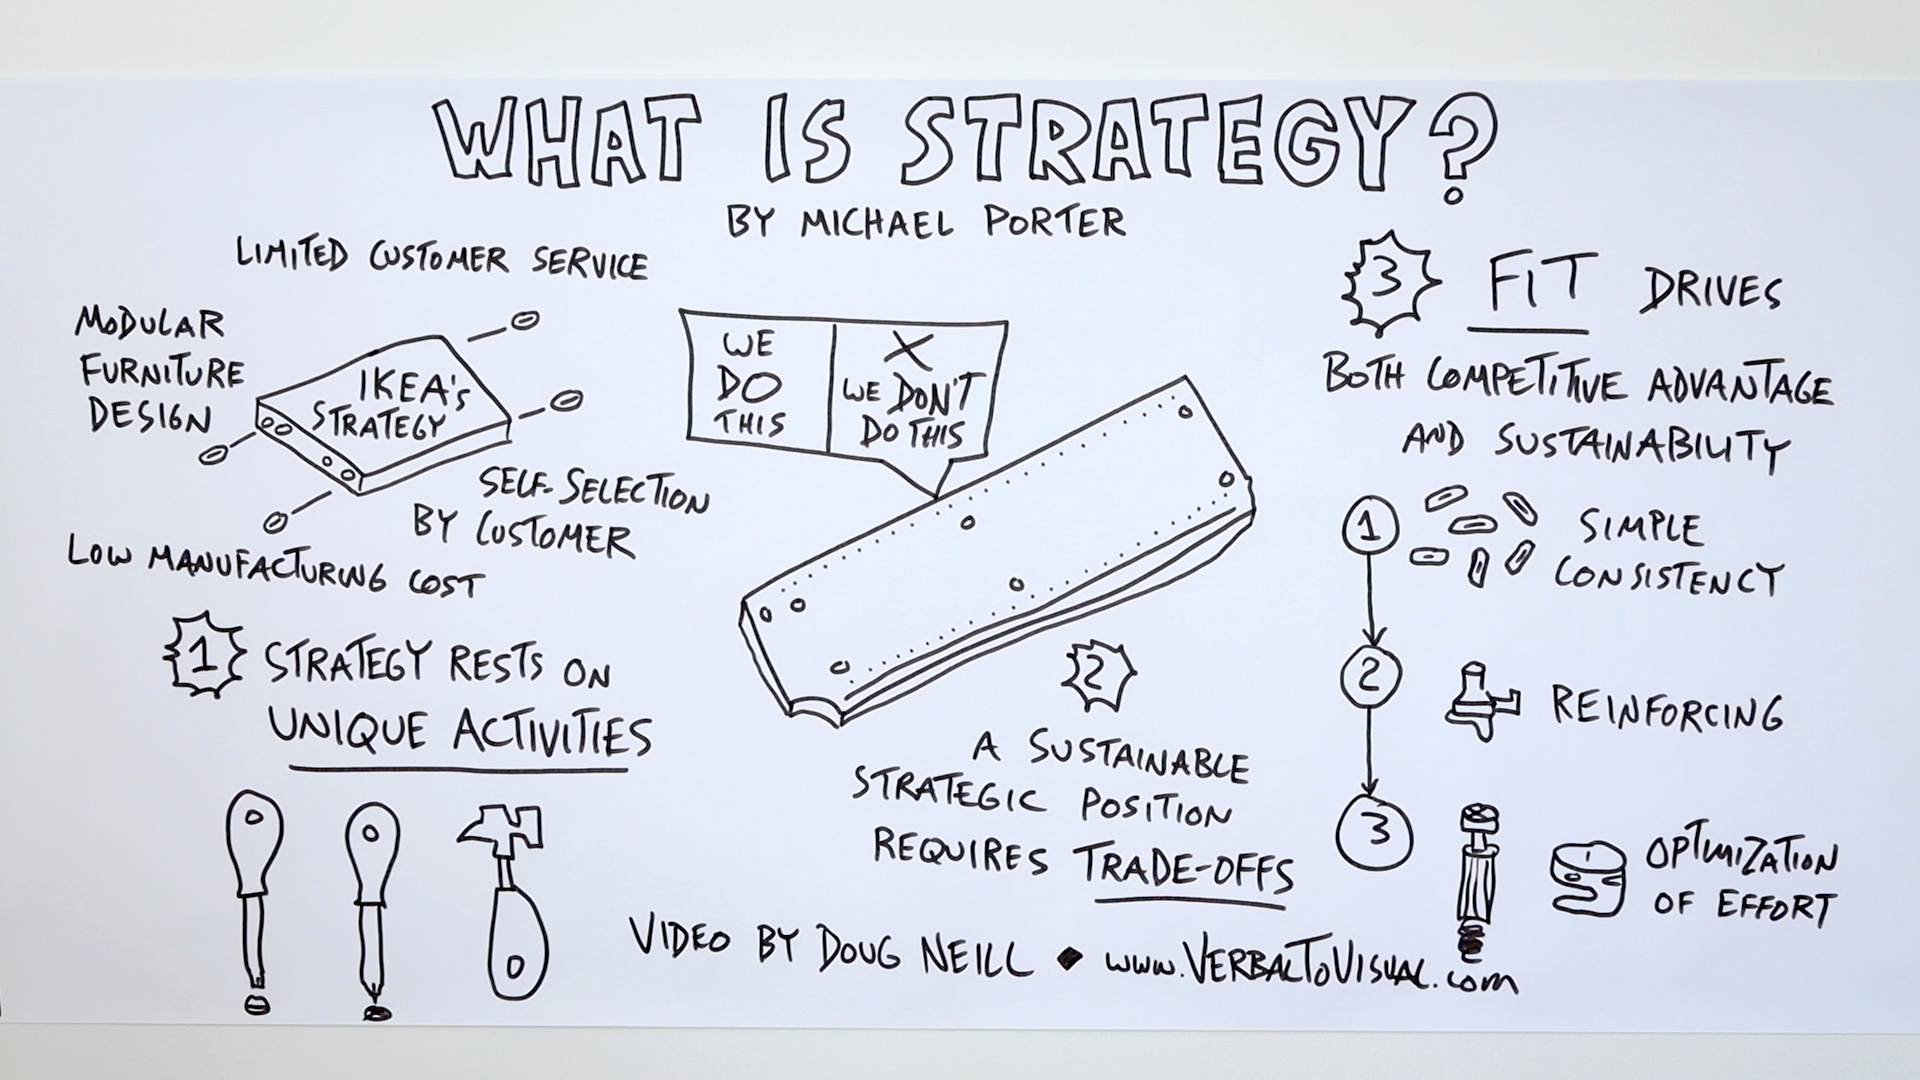 WHAT IS STRATEGY?
BY MICHAEL PORTER
LIMITED CUSTOMER SERVICE
MODULAR
FURNITURE
DESIGN
IKEA's
STRATEGY
SELF-SELECTION
BY CUSTOMER
LOW MANUFACTURING COST
1 STRATEGY RESTS ON
UNIQUE ACTIVITIES
WE
DO
THIS
X
WE DON'T
DO THIS
2
A SUSTAINABLE
STRATEGIC POSITION
REQUIRES TRADE-OFFS
3 FIT DRIVES
BOTH COMPETITIVE ADVANTAGE
AND SUSTAINABILITY
1 SIMPLE
CONSISTENCY
2 REINFORCING
3 OPTIMIZATION
OF EFFORT
VIDEO BY DOUG NEILL ◆ www.VERBALTOVISUAL.com